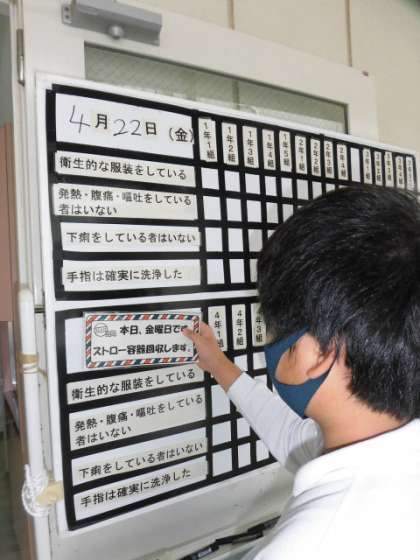 4月22日(金)
1年1組
1年2組
1年3組
1年4組
1年5組
2年1組
2年2組
2年3組
2年4組
衛生的な服装をしている
発熱・腹痛・嘔吐をしている
者はいない
下痢をしている者はいない
手指は確実に洗浄した
本日、金曜日です
ストロー容器回収します。
4年1組
4年2組
4年3
衛生的な服装をしている
発熱・腹痛・嘔吐をしている
者はいない
下痢をしている者はいない
手指は確実に洗浄した